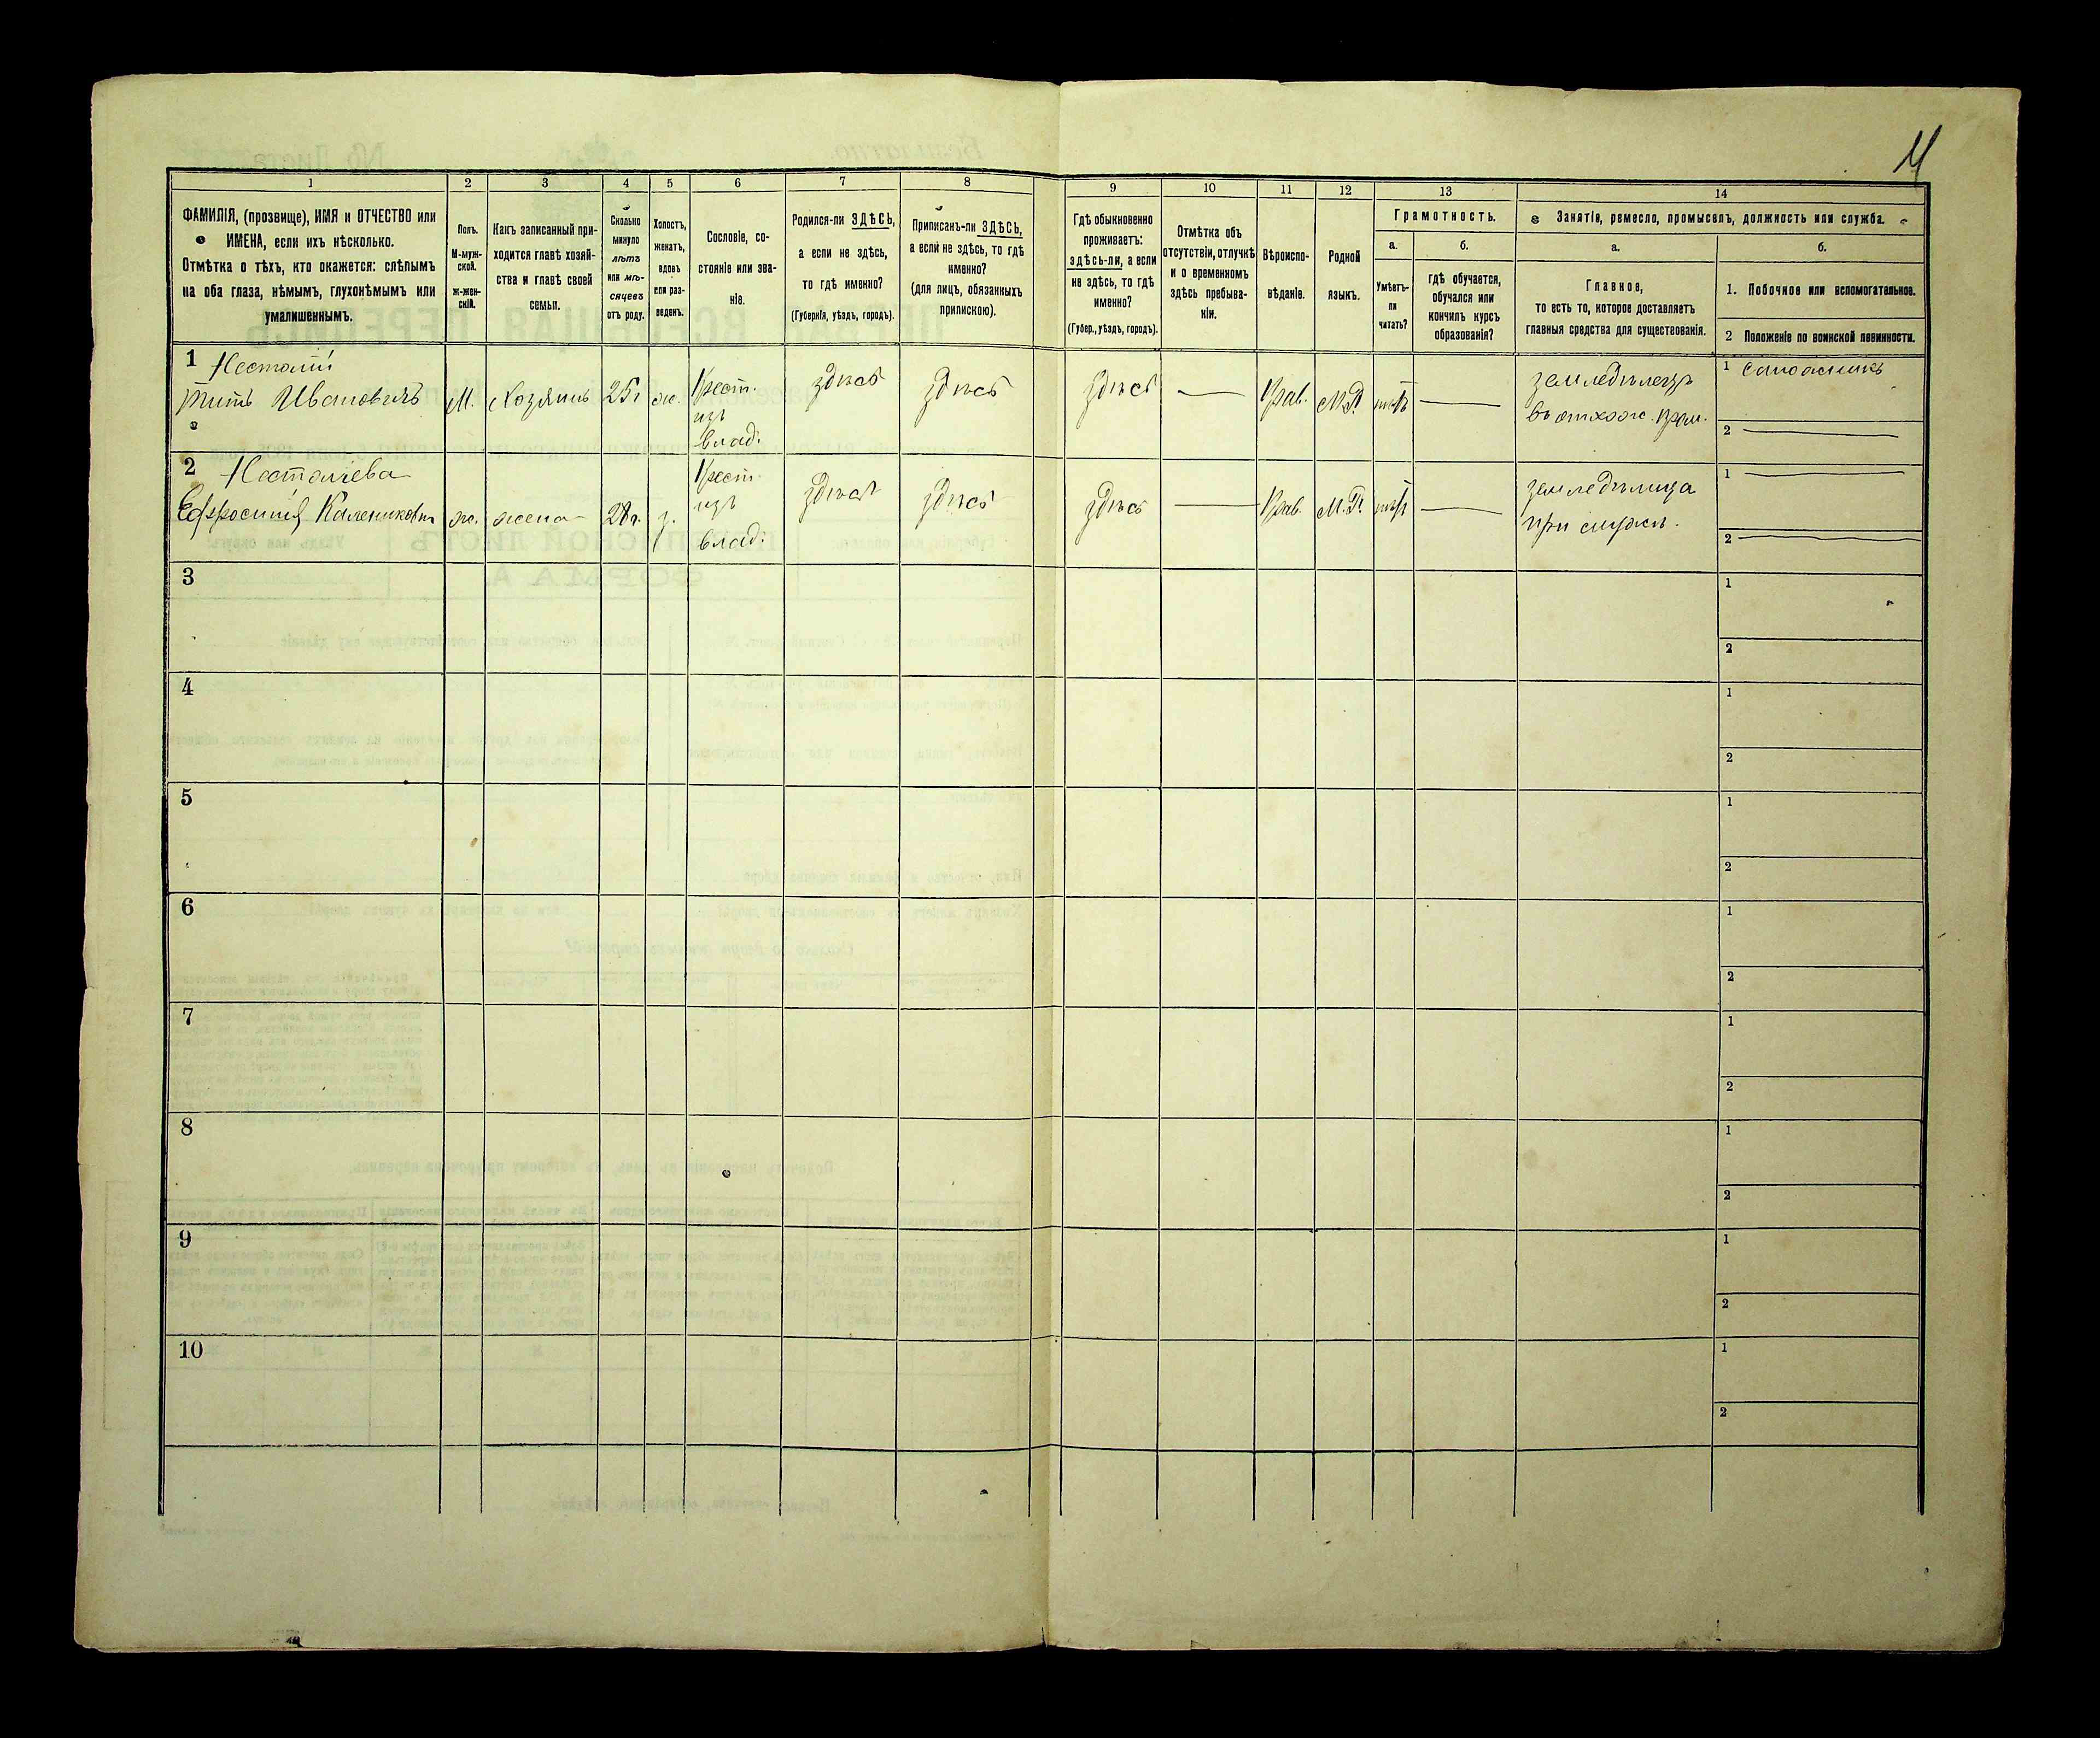 11
1
2
3
4
5
6
7
8
9
10
11
12
13
14
ФАМИЛІЯ, (прозвище), ИМЯ и ОТЧЕСТВО или
ИМЕНА, если ихъ нѣсколько.
Отмѣтка о тѣхъ, кто окажется: слѣпымъ
на оба глаза, нѣмымъ, глухонѣмымъ или
умалишеннымъ.
Полъ.
М-муж-
ской.
Ж-жен-
скій.
Какъ записанный при-
ходится главѣ хозяй-
ства и главѣ своей
семьи.
Сколько
минуло
лѣтъ
или мѣ-
сяцевъ
отъ роду.
Холостъ,
женатъ,
вдовъ
или раз-
веденъ.
Сословіе, со-
стояніе или зва-
ніе.
Родился-ли ЗДѢСЬ,
а если не здѣсь,
то гдѣ именно?
(Губернія, уѣздъ, городъ).
Приписанъ-ли ЗДѢСЬ,
а если не здѣсь, то гдѣ
именно?
(для лицъ, обязанныхъ
припискою).
Гдѣ обыкновенно
проживаетъ:
здѣсь-ли, а если
не здѣсь, то гдѣ
именно?
(Губер., уѣздъ, городъ).
Отмѣтка объ
отсутствіи, отлучкѣ
и о временномъ
здѣсь пребыва-
ніи.
Вѣроиспо-
вѣданіе.
Родной
языкъ.
Грамотность.
а.
б.
Умѣетъ-
ли
читать?
гдѣ обучается,
обучался или
кончилъ курсъ
образованія?
Занятіе, ремесло, промыселъ, должность или служба.
а.
б.
Главное,
то есть то, которое доставляетъ
главныя средства для существованія.
1. Побочное или вспомогательное.
2 Положеніе по воинской повинности.
1
Титъ Ивановичъ
М.
Хозяинъ
25 г
ж.
Крест.
изъ
влад.
здѣсь
здѣсь
здѣсь
—
Прав.
М.Р.
нѣтъ
—
земледѣлецъ
въ отхож. пром.
1
2 —
2
Ефросинія
ж.
жена
28 г.
з.
Крест.
изъ
влад.
здѣсь
здѣсь
здѣсь
—
Прав.
М.Р.
нѣтъ
—
земледѣлица
при мужѣ.
1 —
2 —
3
1
2
4
1
2
5
1
2
6
1
2
7
1
2
8
1
2
9
1
2
10
1
2